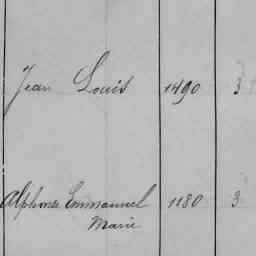 Jean Louis 1490 3
Alphonse Emmanuel 1180 3
Marie